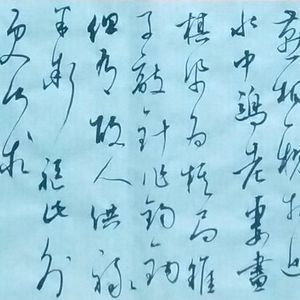 燕相親相近
水中鷗老妻畫
为棋局稚
子敲針作釣鉤
但有故人供禄
米微軀此外
更何求